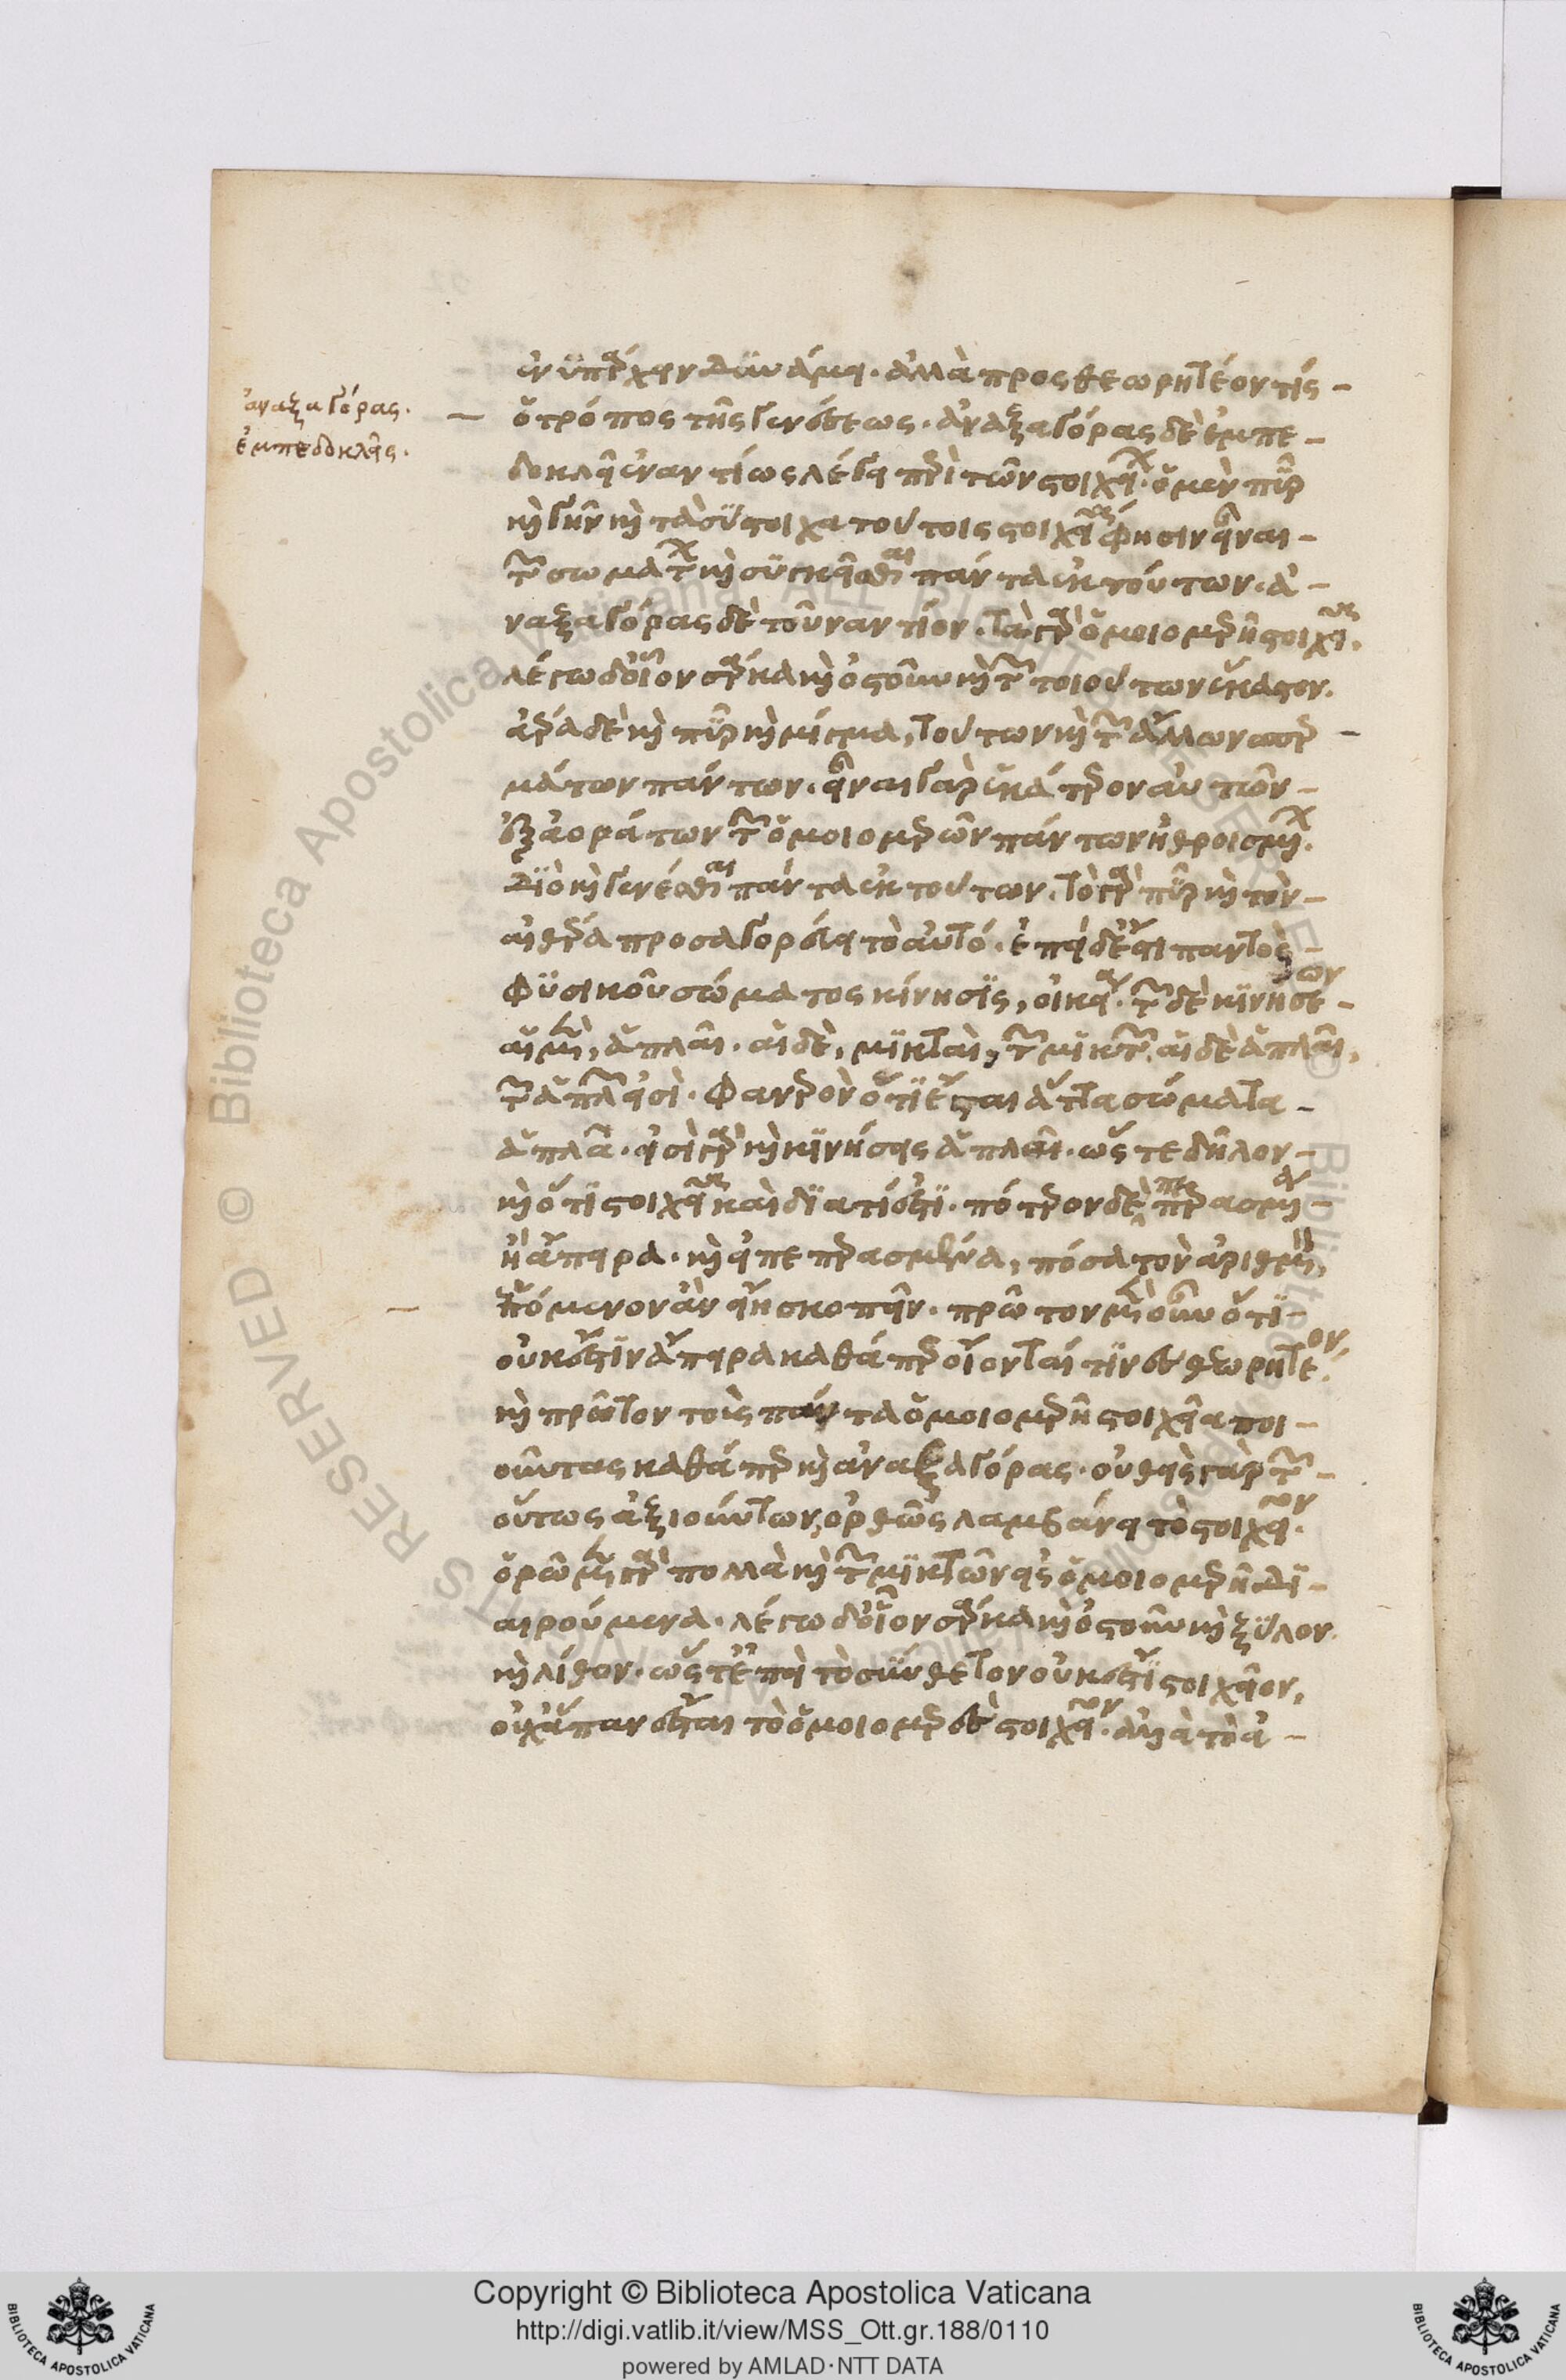 ἐνυπάρχειν δυνάμει. ἀλλὰ προσθεωρητέον τίς -
ἀναξαγόρας.
ἐμπεδοκλῆς.
ὁ τρόπος τῆς γενέσεως. ἀναξαγόρας δὲ ἐμπε -
δοκλεῖ ἐναντίως λέγει περὶ τῶν στοιχείων. ὁ μὲν πῦρ
καὶ γῆν καὶ τὰ σύστοιχα τούτοις στοιχεῖά φησιν εἶναι -
τῶν σωμάτων καὶ συγκεῖσθαι πάντα ἐκ τούτων. ἀ -
ναξαγόρας δὲ τοὐναντίον. τὰ γὰρ ὁμοιομερῆ στοιχεῖα.
λέγω δ' οἷον σάρκα καὶ ὀστοῦν καὶ τῶν τοιούτων ἕκαστον.
ἀέρα δὲ καὶ πῦρ καὶ μίγμα, τούτων καὶ τῶν ἄλλων σπερ -
μάτων πάντων. εἶναι γὰρ ἑκάτερον αὐτῶν -
ἐξ ἀοράτων τῶν ὁμοιομερῶν πάντων ἠθροισμένων.
διὸ καὶ γενέσθαι πάντα ἐκ τούτων. τὸ γὰρ πῦρ καὶ τὸν -
αἰθέρα προσαγορεύει τὸ αὐτό. ἐπεὶ δέ ἐστι παντὸς -
φυσικοῦ σώματος κίνησις, οἰκεία. τῶν δὲ κινήσεων -
αἱ μὲν, ἁπλαῖ. αἱ δὲ, μικταὶ, τῶν μικτῶν. αἱ δὲ ἁπλαῖ,
τῶν ἁπλῶν εἰσὶ. φανερὸν ὅτι ἔσται ἄττα σώματα -
ἁπλᾶ. εἰσὶ γὰρ καὶ κινήσεις ἁπλαῖ. ὥστε δῆλον -
καὶ ὅτι στοιχεῖα καὶ διατί ἐστι. πότερον δὲ πεπερασμένα -
ἢ ἄπειρα. καὶ εἰ πεπερασμένα, πόσα τὸν ἀριθμὸν,
ἑπόμενον ἂν εἴη σκοπεῖν. πρῶτον μὲν οὖν ὅτι -
οὐκ ἔστιν ἄπειρα καθάπερ οἴονταί τινες θεωρητέον.
καὶ πρῶτον τοὺς πάντα ὁμοιομερῆ στοιχεῖα ποι -
οῦντας καθάπερ καὶ ἀναξαγόρας. οὐθεὶς γὰρ τῶν -
οὕτως ἀξιούντων, ὀρθῶς λαμβάνει τὸ στοιχεῖον.
ὁρῶμεν γὰρ πολλὰ καὶ τῶν μικτῶν εἰς ὁμοιομερῆ δι -
αιρούμενα. λέγω δ' οἷον σάρκα καὶ ὀστοῦν καὶ ξύλον
καὶ λίθον. ὥστ' ἐπεὶ τὸ σύνθετον οὐκ ἔστι στοιχεῖον,
οὐχ ἅπαν ἔσται τὸ ὁμοιομερὲς στοιχεῖον. ἀλλὰ τὸ ἀ -
Copyright © Biblioteca Apostolica Vaticana
http://digi.vatlib.it/view/MSS_Ott.gr.188/0110
powered by AMLAD·NTT DATA